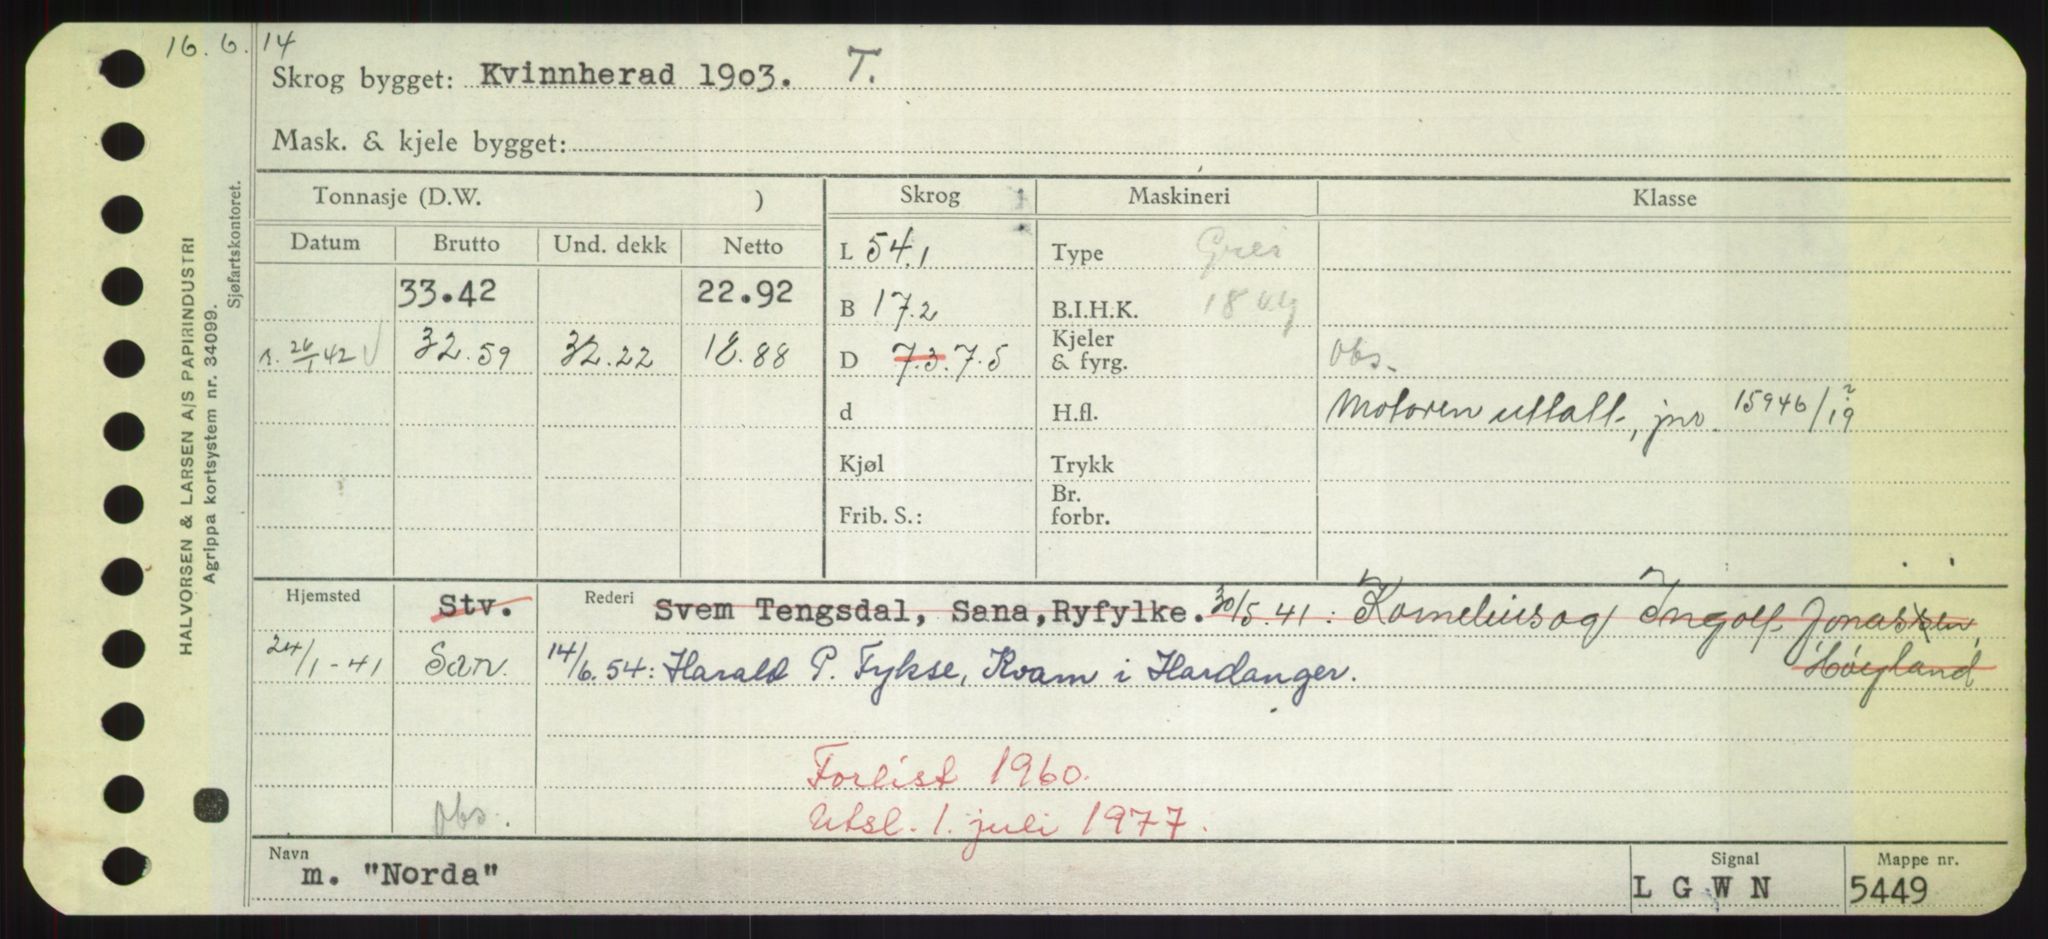 16. 6. 14
Skrog bygget: Kvinnherad 1903. T.
Mask. & kjele bygget:
Tonnasje (D.W. ) Skrog Maskineri Klasse
Datum Brutto Und. dekk Netto L 54.1 Type
33.42 22.92 B 17.2 B.I.H.K. 18
26/1 42 32.59 32.22 18.88 D 7.3. 7.5 Kjeler & fyrg. Obs.
d H.fl. Motoren uttatt, jnr. 15946/19
Kjøl Trykk
Frib. S.: Br. forbr.
Hjemsted Stv. Rederi Svem Tengsdal, Sana, Ryfylke. 30/5.41: Kornelius og Ingolf Jonassen,
Høigland
24/1-41 San. 14/6.54: Harald P. Fykse, Kvam i Hardanger.
Forlist 1960.
Obs. Utsl. 1. juli 1977.
Navn Signal Mappe nr.
m. "Norda" L G W N 5449
HALVORSEN & LARSEN A/S PAPIRINDUSTRI
Agrippa kortsystem nr. 34099.
Sjøfartskontoret.